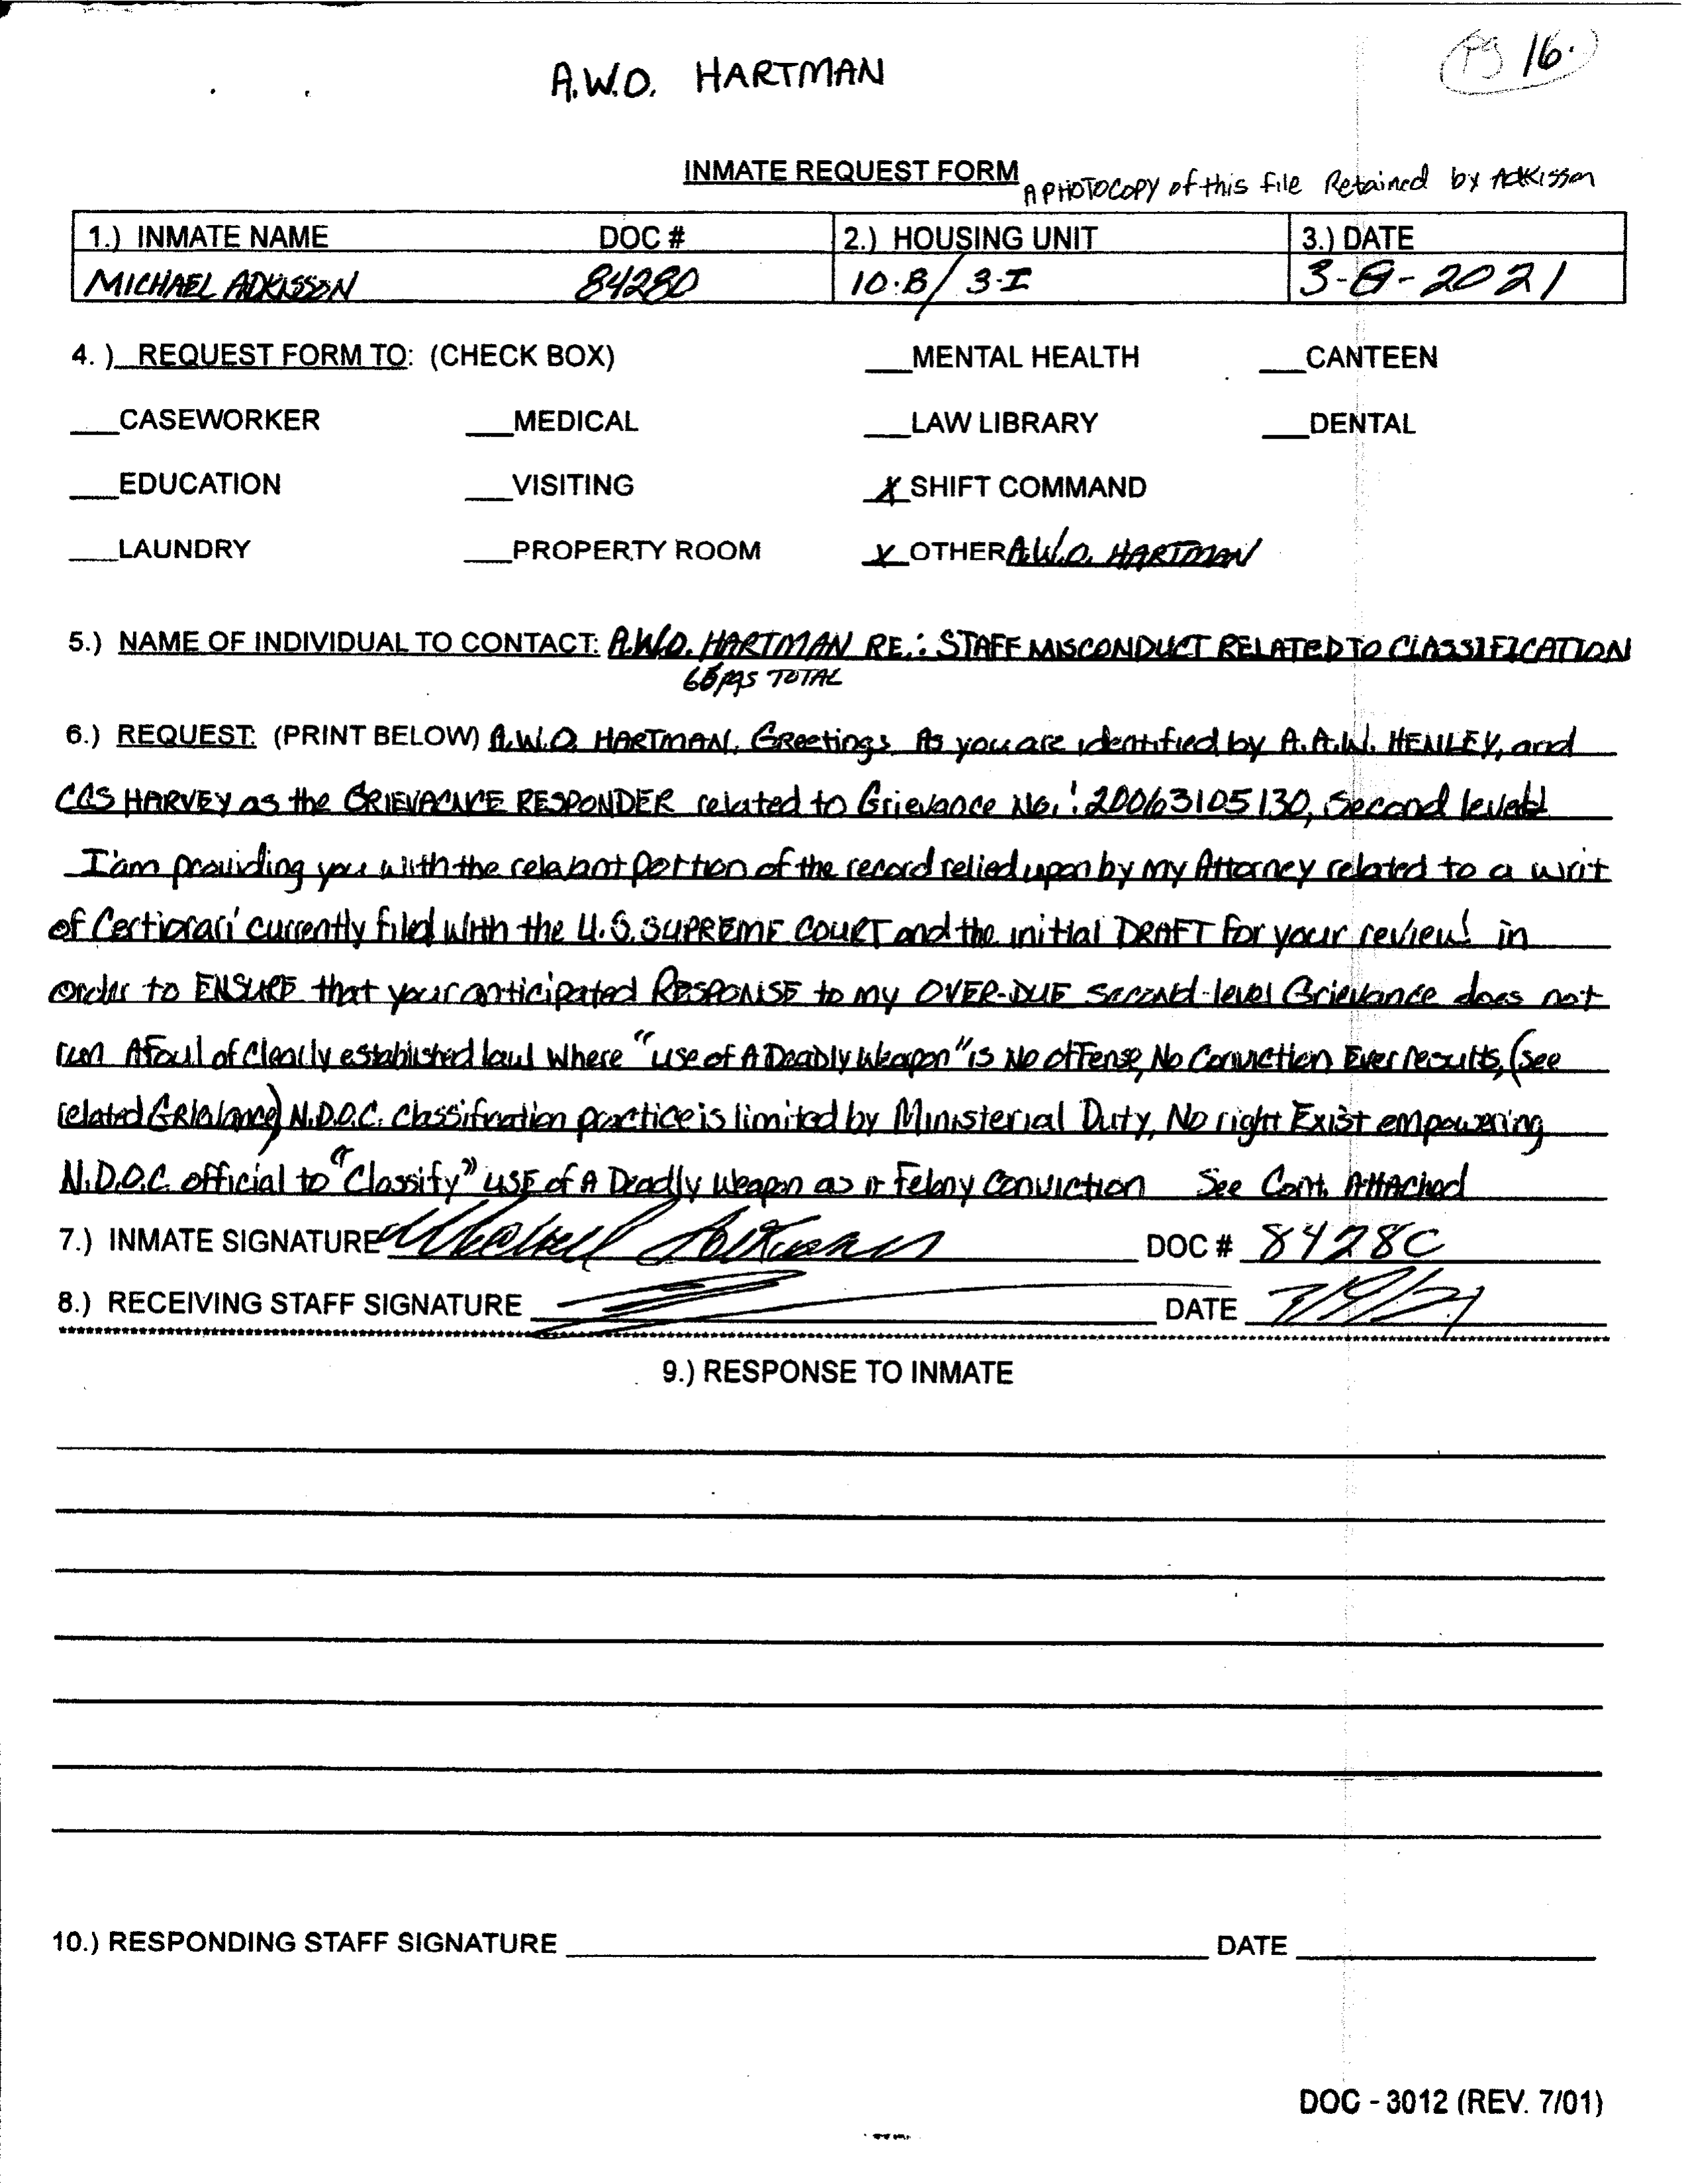 A.W.O. HARTMAN
Pg 16.
INMATE REQUEST FORM
A PHOTOCOPY of this file Retained by Adkisson
1.) INMATE NAME DOC # 2.) HOUSING UNIT 3.) DATE
MICHAEL ADKISSON 84280 10·B/3·I 3-8-2021
4. ) REQUEST FORM TO: (CHECK BOX) ___MENTAL HEALTH ___CANTEEN
___CASEWORKER ___MEDICAL ___LAW LIBRARY ___DENTAL
___EDUCATION ___VISITING _X_SHIFT COMMAND
___LAUNDRY ___PROPERTY ROOM _X_OTHER A.W.O. HARTMAN
5.) NAME OF INDIVIDUAL TO CONTACT: A.W.O. HARTMAN RE.: STAFF MISCONDUCT RELATED TO CLASSIFICATION
pgs TOTAL
6.) REQUEST: (PRINT BELOW) A.W.O. HARTMAN, Greetings, As you are identified by A.A.W. HENLEY, and
CCS HARVEY as the GRIEVACNCE RESPONDER related to Grievance No.: 20063105130, Second level
I'am providing you with the relabant portion of the record relied upon by my Attorney related to a writ
of Certiorari currently filed with the U.S. SUPREME COURT and the initial DRAFT for your review! in
order to ENSURE that your anticipated RESPONSE to my OVER-DUE second-level Grievance does not
run Afoul of clearly established law where "use of A Deadly Weapon" is No offense, No Conviction Ever results, (see
related Grievance) N.D.O.C. Classification practice is limited by Ministerial Duty, No right Exist empowering
N.D.O.C. official to "Classify" USE of A Deadly Weapon as a Felony Conviction See Cont. Attached
7.) INMATE SIGNATURE Michael Adkisson DOC # 84280
8.) RECEIVING STAFF SIGNATURE DATE
9.) RESPONSE TO INMATE
10.) RESPONDING STAFF SIGNATURE DATE
DOC - 3012 (REV. 7/01)